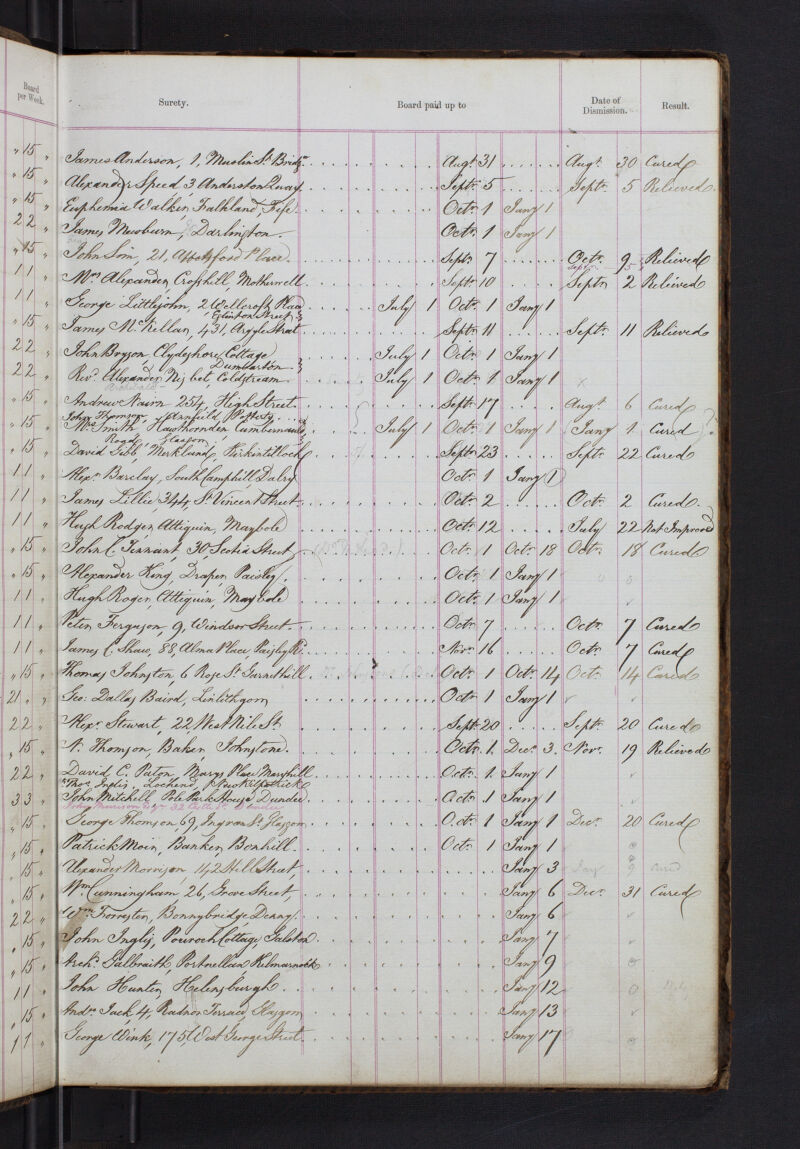 Board per Week. Surety. Board paid up to Date of Dismission. Result.
" 15 " James Anderson, 1, Muslin St. Bridgn. Augt. 31 Augt. 30 Cured
" 15 " Alexander Speed 3 Anderston Quay. Septr. 5 Septr. 5 Relieved
" 15 " Euphemia Walker, Falkland, Fife. Octr. 1 Jany 1
22 " James Mewburn, Darlington. Octr. 1 Jany 1
" 15 " John Sim, 21, Abbotsford Place. Septr. 7 Octr. 9 Relieved
Septr. 5
11 " Mrs Alexander, Crosshill, Motherwell Septr. 10 Septr 2 Relieved
11 " George Littlejohn, 2 Wellcroft Place Eglinton Street July 1 Octr. 1 Jany 1
" 15 " James McKellar, 431, Argyle Street Septr. 11 Septr. 11 Relieved
22 " John Bryson Clydeshore Cottage Dumbarton July 1 Octr. 1 Jany 1
22 " Revd. Alexander Nisbet, Coldstream July 1 Octr. 1 Jany 1
" 15 " Andrew Nairn 254, High Street. Septr. 17 Augt. 6 Cured
John Thomson, Annfield Potty
" 15 " Mrs Smith Hawthornden Cumbernauld Road, Glasgow July 1 Octr. 1 Jany 1 Jany 1 Cured
" 15 " David Gibb, Merkland, Kirkintilloch Septr. 23 Septr. 22 Cured
11 " Alexr. Barclay, South Camphill, Dalry Octr. 1 Jany 1
11 " James Lillie 344, St. Vincent Street Octr. 2 Octr. 2 Cured.
11 " Hugh Rodger, Attiquin, Maybole Octr. 12 July 22 Not Improved
" 15 " John C. Tennant, 30, Scotia Street Octr. 1 Octr. 18 Octr. 18 Cured
" 15 " Alexander King, Draper, Paisley. Octr. 1 Jany 1
11 " Hugh Roger, Attiquin, Maybole Octr. 1 Jany 1
11 " Peter Ferguson, 9, Windsor Street Octr. 7 Octr. 7 Cured
11 " James C. Shaw, 88, Alma Place, Paisley Rd. Novr. 16 Octr. 7 Cured
" 15 " Thomas Johnston, 6 Rose St. Garnethill Octr. 1 Octr. 14 Octr. 14 Cured
21 " " Geo: Dallas Baird, Linlithgow Octr. 1 Jany 1
22 " Alexr. Stewart, 22 West Nile St. Septr. 20 Septr. 20 Cured
" 15 " N. Thomson, Baker, Johnstone. Octr. 1. Decr. 3. Novr. 19 Relieved
22 " David C. Paton, Marys Place, Maryhill Octr. 1 Jany 1
Thos. Inglis, Lochend, New Kilpatrick
33 " John Mitchell, Pole Park House, Dundee. Octr. 1 Jany 1
" 15 " George Thomson, 69, Ingram St. Glasgow Octr. 1 Jany 1 Decr. 20 Cured
" 15 " Patrick Moir, Banker, Bonhill. Octr. 1 Jany 1
" 15 " Alexander Morrison 142 Hill Street, Jany 3
" 15 " Wm. Cunningham 26, Grove Street, Jany 6 Decr. 31 Cured
22 " Wm. Forrester, Bonnybridge Denny. Jany 6
" 15 " John Inglis, Pouroch Cottage, Galston Jany 7
" 15 " Archd. Galbraith, Portnellan, Kilmarnock Jany 9
11 " John Hunter, Helensburgh. Jany 12
" 15 " Andw. Jack, 4, Radnor Terrace, Glasgow Jany 13
11 " George Wink, 175, West George Street. Jany 17